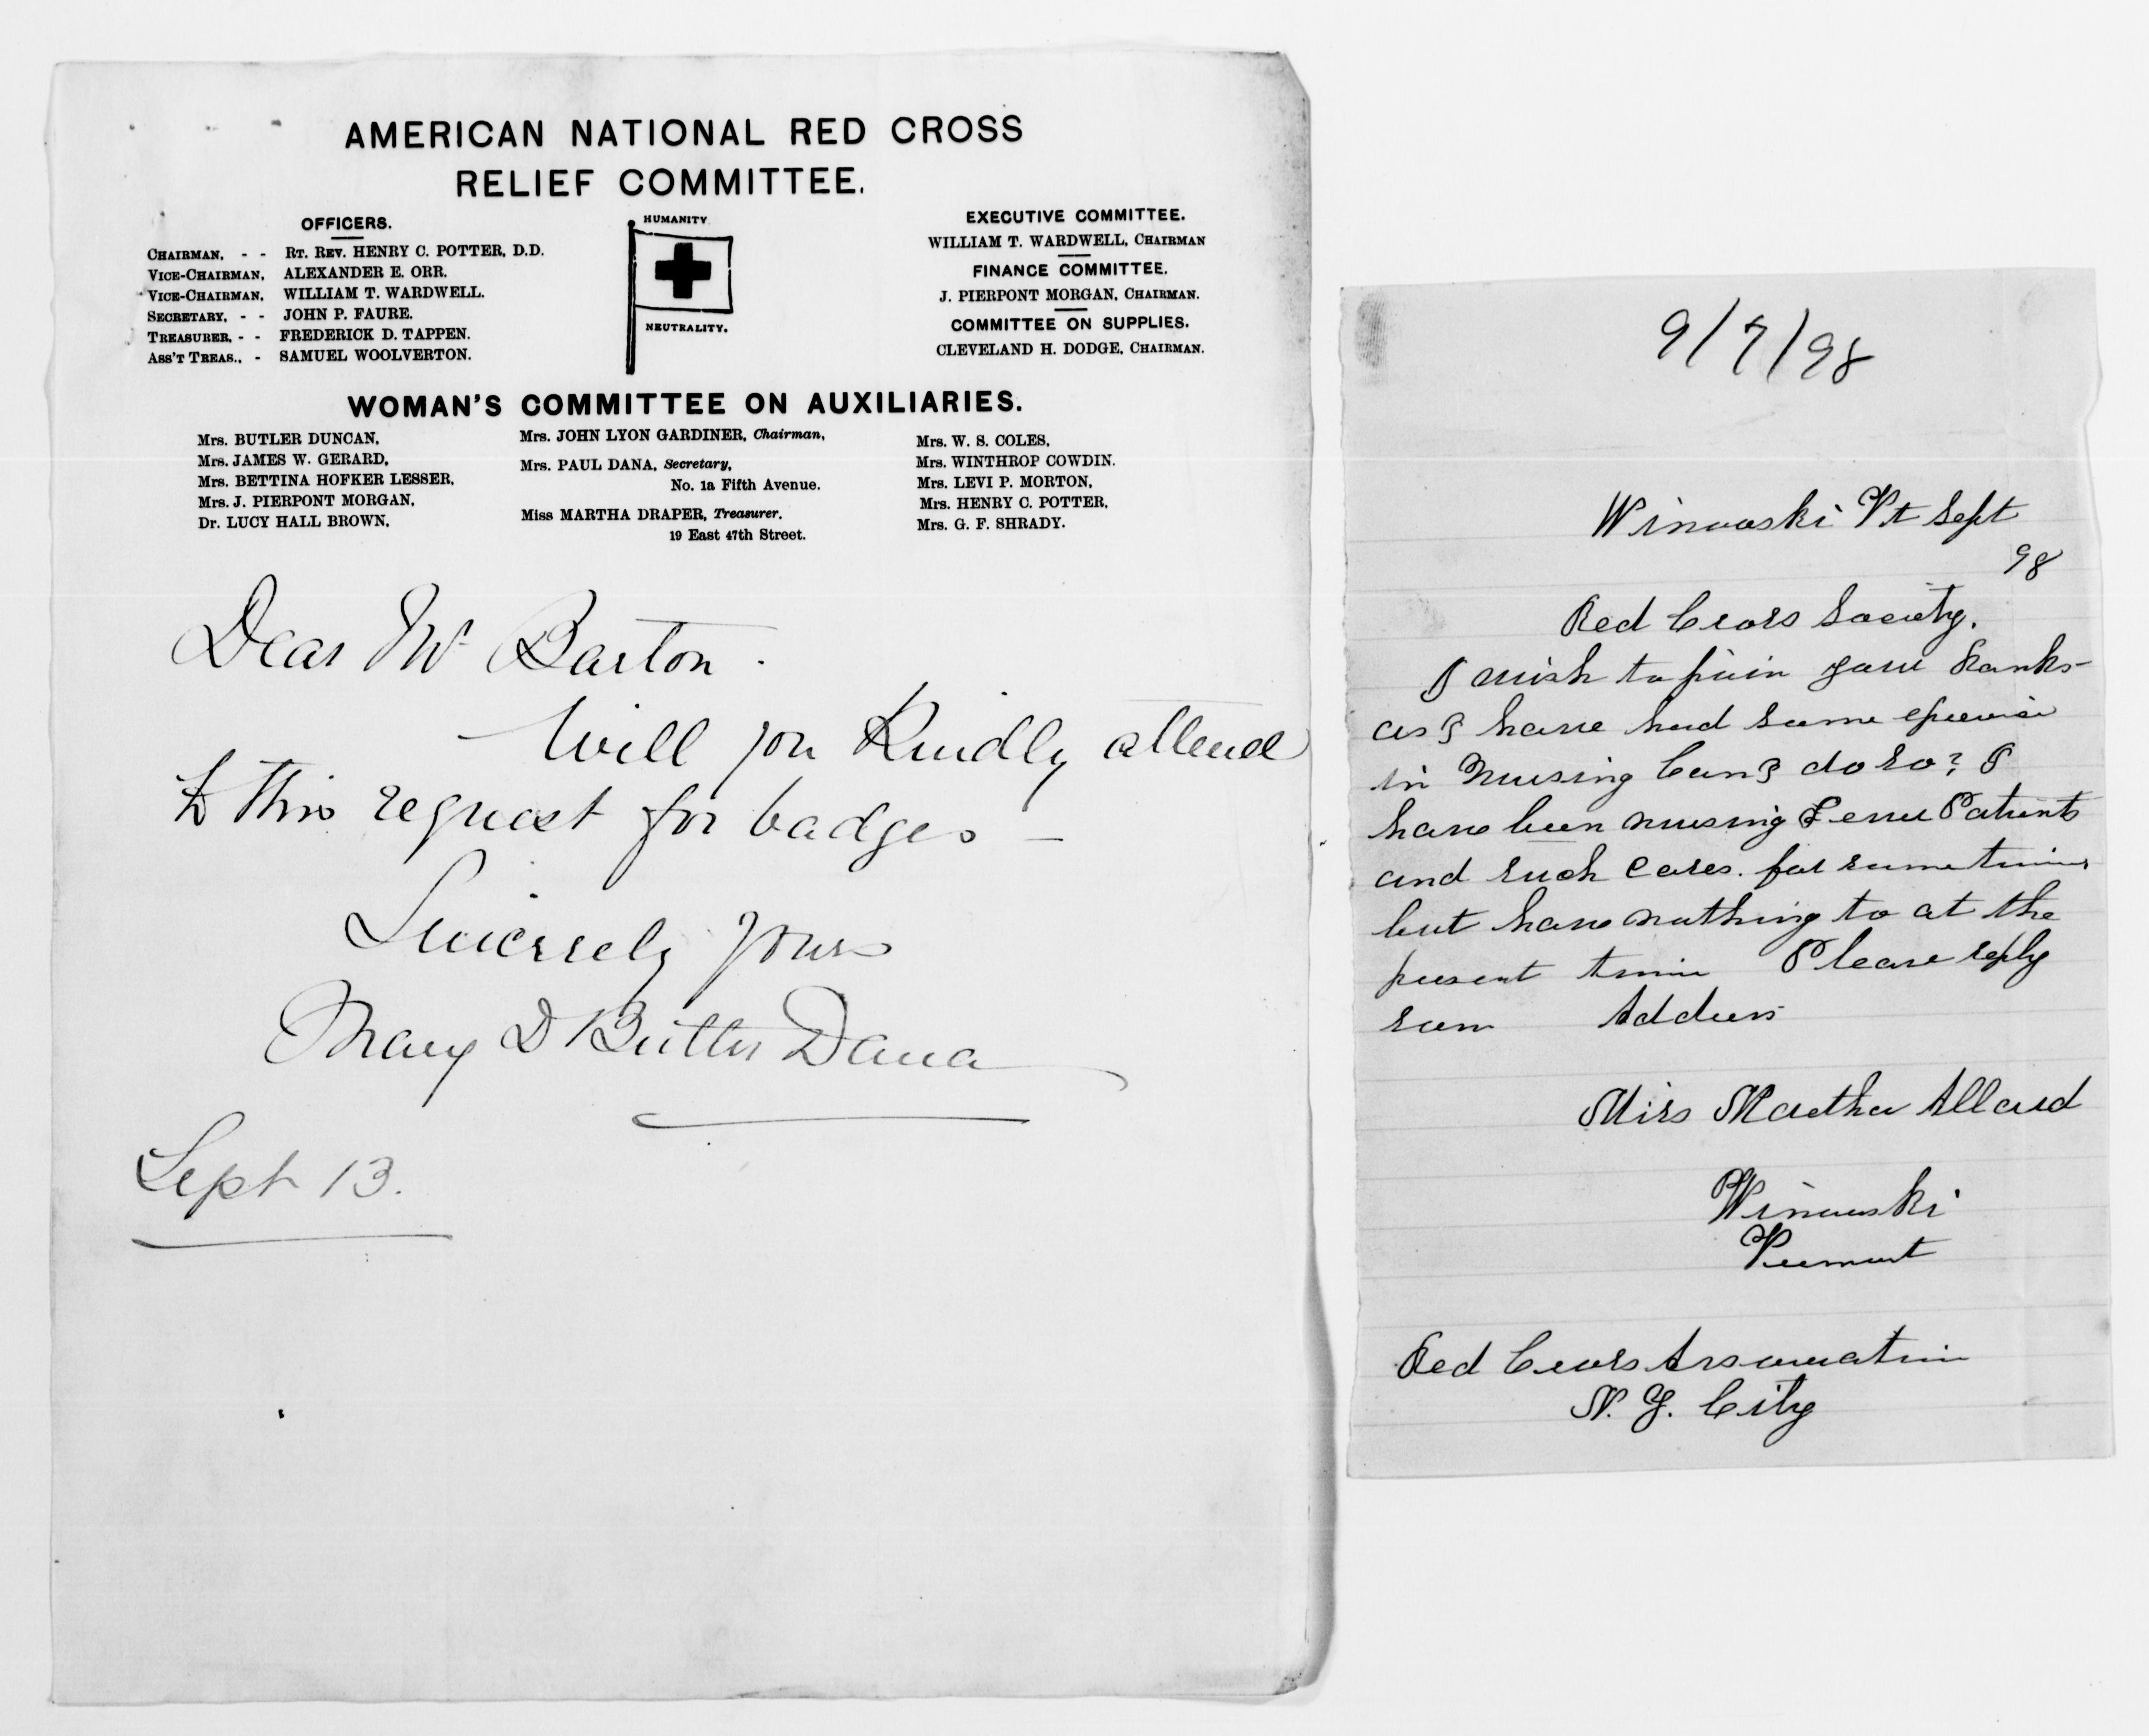 AMERICAN NATIONAL RED CROSS
RELIEF COMMITTEE.
OFFICERS.
CHAIRMAN, - - RT. REV. HENRY C. POTTER, D.D.
VICE-CHAIRMAN, ALEXANDER E. ORR.
VICE-CHAIRMAN, WILLIAM T. WARDWELL.
SECRETARY, - - JOHN P. FAURE.
TREASURER, - - FREDERICK D. TAPPEN.
ASS'T TREAS., - SAMUEL WOOLVERTON.
HUMANITY
NEUTRALITY.
EXECUTIVE COMMITTEE.
WILLIAM T. WARDWELL, CHAIRMAN
FINANCE COMMITTEE.
J. PIERPONT MORGAN, CHAIRMAN.
COMMITTEE ON SUPPLIES.
CLEVELAND H. DODGE, CHAIRMAN.
WOMAN'S COMMITTEE ON AUXILIARIES.
Mrs. BUTLER DUNCAN,
Mrs. JAMES W. GERARD,
Mrs. BETTINA HOFKER LESSER,
Mrs. J. PIERPONT MORGAN,
Dr. LUCY HALL BROWN,
Mrs. JOHN LYON GARDINER, Chairman,
Mrs. PAUL DANA, Secretary,
No. 1a Fifth Avenue.
Miss MARTHA DRAPER, Treasurer.
19 East 47th Street.
Mrs. W. S. COLES,
Mrs. WINTHROP COWDIN.
Mrs. LEVI P. MORTON,
Mrs. HENRY C. POTTER,
Mrs. G. F. SHRADY.
Dear Mr Barton.
Will you kindly attend
to this request for badges -
Sincerely yours
Mary D Butler Dana
Sept 13.
9/7/98
Winooski Vt Sept
98
Red Cross Society.
I wish to join your Ranks-
as I have had some
in Nursing Can I do so? I
have been nursing Patients
and such Cases. for some time
but have nothing to at the
present time Please reply
soon Address
Miss Martha Allard
Winooski
Vermont
Red Cross Association
N. Y. City